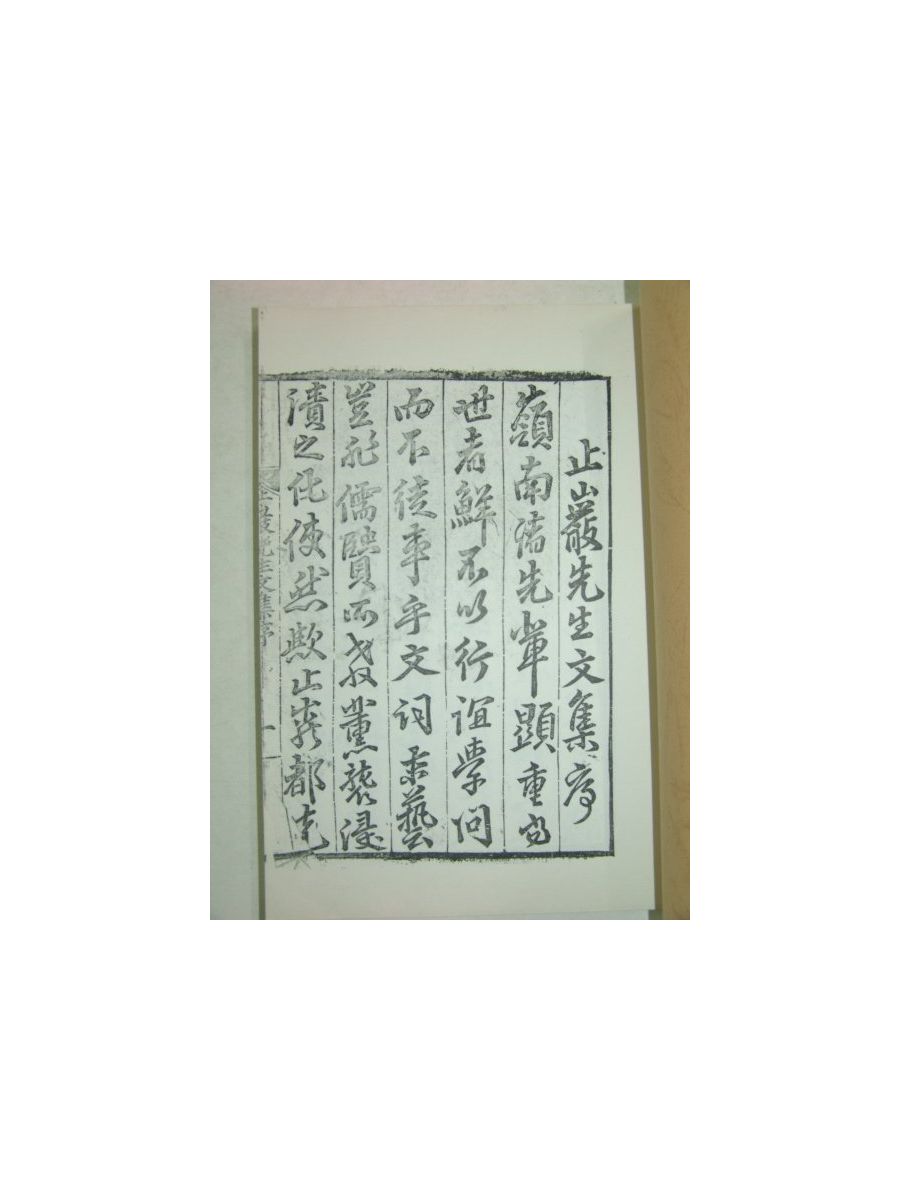 止巖先生文集序
嶺南儒先輩顯重當
世者鮮不以行誼學問
而不徒事乎文詞末藝
豈非儒賢所教薰襲浸
漬之化使然歟止巖都先